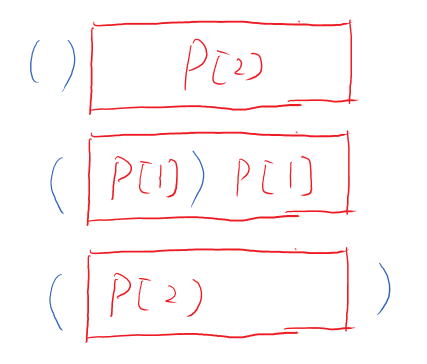 ( ) P[2]
( P[1] ) P[1]
( P[2] )